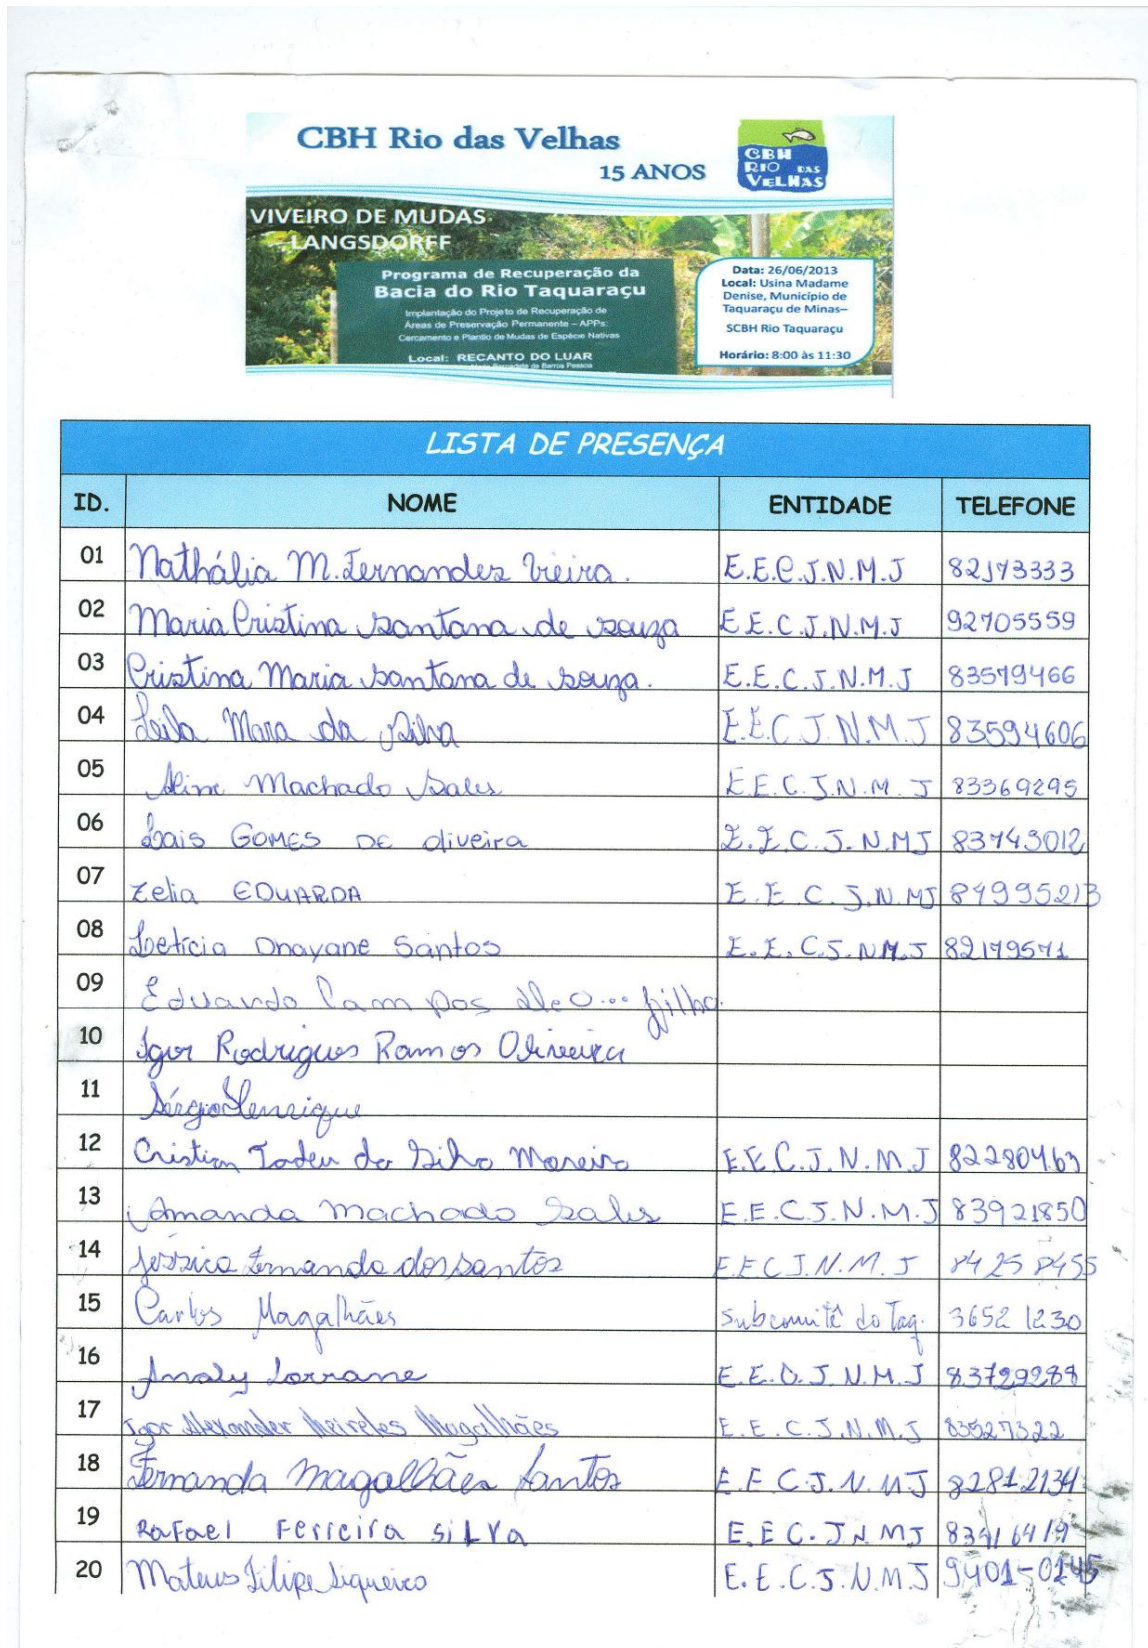 CBH Rio das Velhas
15 ANOS
CBH
RIO DAS
VELHAS
VIVEIRO DE MUDAS
LANGSDORFF
Programa de Recuperação da
Bacia do Rio Taquaraçu
Implantação do Projeto de Recuperação de
Áreas de Preservação Permanente – APPs:
Cercamento e Plantio de Mudas de Espécie Nativas
Local: RECANTO DO LUAR
Data: 26/06/2013
Local: Usina Madame
Denise, Município de
Taquaraçu de Minas–
SCBH Rio Taquaraçu
Horário: 8:00 às 11:30
LISTA DE PRESENÇA
ID. NOME ENTIDADE TELEFONE
01 Nathália M. Fernandes Vieira. E.E.C.J.N.M.J 82173333
02 Maria Cristina Santana de Souza E.E.C.J.N.M.J 92705559
03 Cristina Maria Santana de Souza. E.E.C.J.N.M.J 83579466
04 Leila Mara da Silva E.E.C.J.N.M.J 83594606
05 Aline Machado Sales E.E.C.J.N.M.J 83369295
06 Lais GOMES DE oliveira E.E.C.J.N.MJ 83743012
07 Zelia EDUARDA E.E.C.J.N.MJ 84995213
08 Leticia Dnayane Santos E.E.C.J.NM.J 82179571
09 Eduardo Campos filho
10 Igor Rodrigues Ramos Oliveira
11 Sérgio Henrique
12 Cristian Tadeu da Silva Moreira E.E.C.J.N.M.J 82280463
13 Amanda Machado Sales E.E.C.J.N.M.J 83921850
14 Jéssica Fernanda dos Santos E.E.C.J.N.M.J 8425 8455
15 Carlos Magalhães Subcomitê do Taq. 3652 1230
16 Analy Lorrane E.E.C.J.N.M.J 83729288
17 Igor Alexander Meireles Magalhães E.E.C.J.N.M.J 83527322
18 Fernanda Magalhães Santos E.E.C.J.N.MJ 82812134
19 Rafael Ferreira SILVA E.E.C.J.N.MJ
20 Mateus Filipe Siqueira E.E.C.J.N.M.J 9401-0145